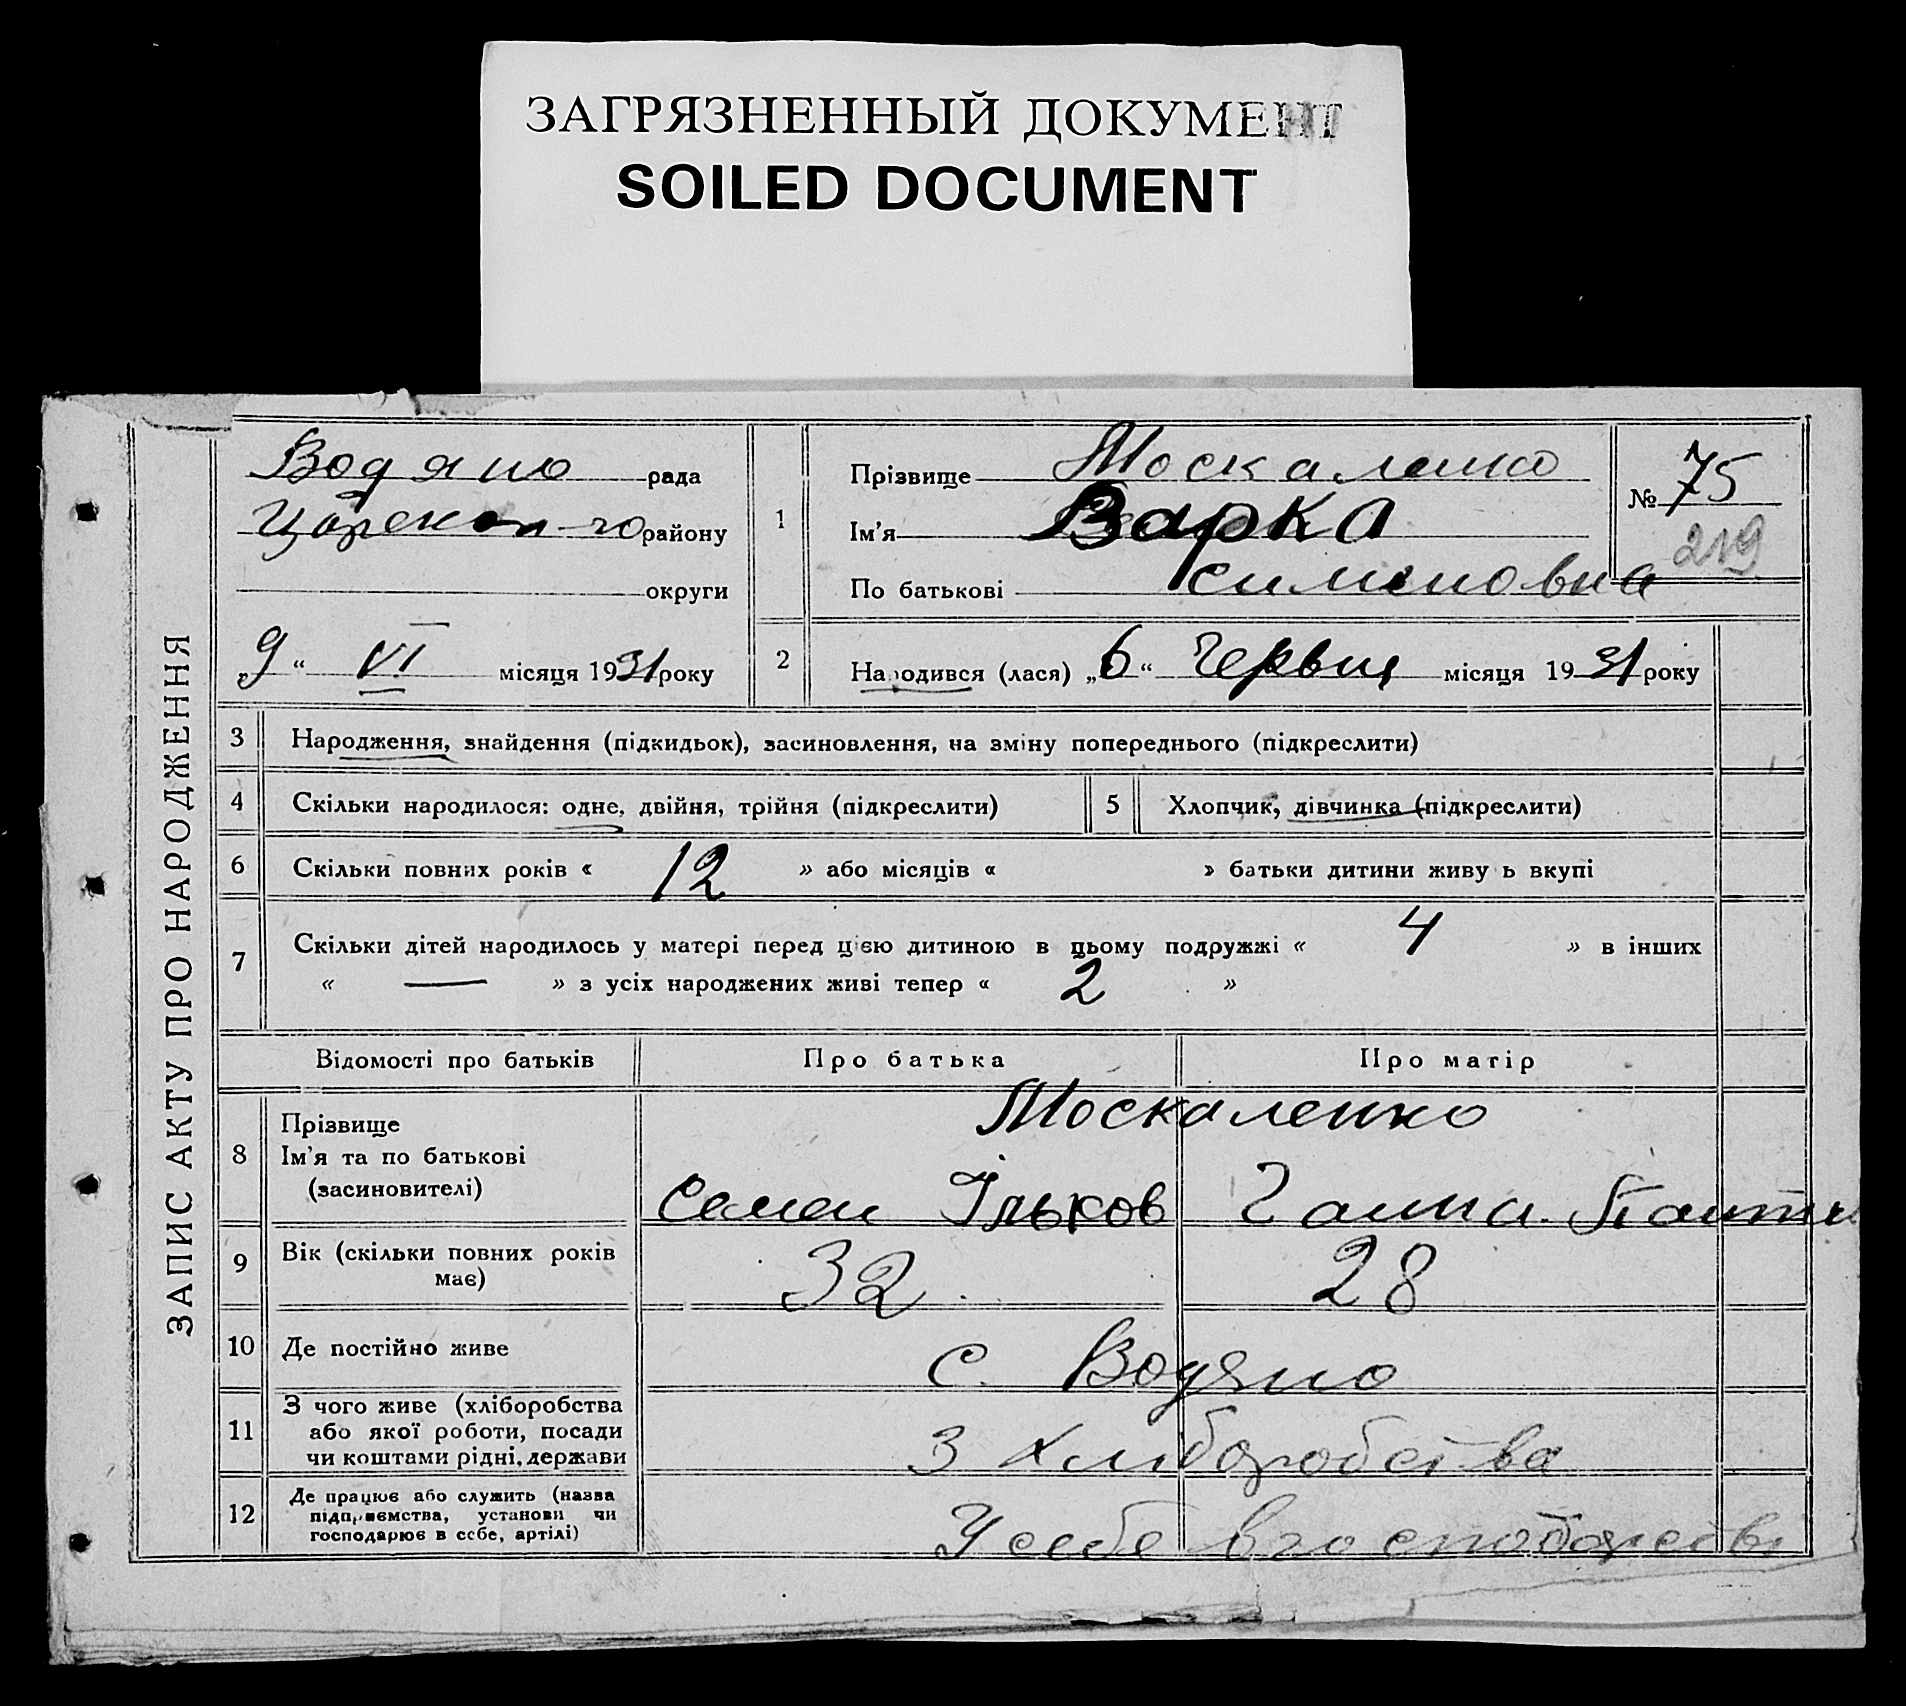 ЗАГРЯЗНЕННЫЙ ДОКУМЕНТ
SOILED DOCUMENT
ЗАПИС АКТУ ПРО НАРОДЖЕННЯ
Водяно рада
району
округи
„9“ VI місяця 1931 року
1
Прізвище Москаленко
Ім’я Варка
По батькові Симоновна
№ 75
219
2
Народився (лася) „6“ Червця місяця 1931 року
3 Народження, знайдення (підкидьок), засиновлення, на зміну попереднього (підкреслити)
4 Скільки народилося: одне, двійня, трійня (підкреслити)
5 Хлопчик, дівчинка (підкреслити)
6 Скільки повних років « 12 » або місяців « » батьки дитини живу ь вкупі
7 Скільки дітей народилось у матері перед цією дитиною в цьому подружжі « 4 » в інших
« — » з усіх народжених живі тепер « 2 »
Відомості про батьків Про батька Про матір
8
Прізвище Москаленко
Ім’я та по батькові
(засиновителі)
Семен Ільков Ганна
9 Вік (скільки повних років
має)
32 28
10 Де постійно живе с. Водяно
11 З чого живе (хліборобства
або якої роботи, посади
чи коштами рідні, держави
З хліборобства
12 Де працює або служить (назва
підприємства, установи чи
господарює в себе, артілі)
У себе в господарстві